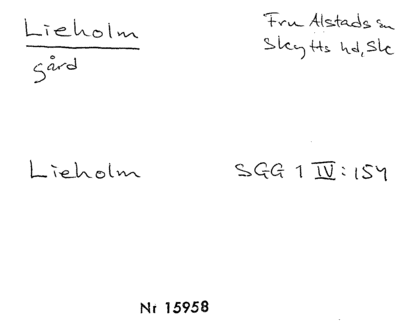 Lieholm
gård
Fru Alstads sn
Skytts hd, Sk
Lieholm
SGG 1 IV: 154
Nr 15958